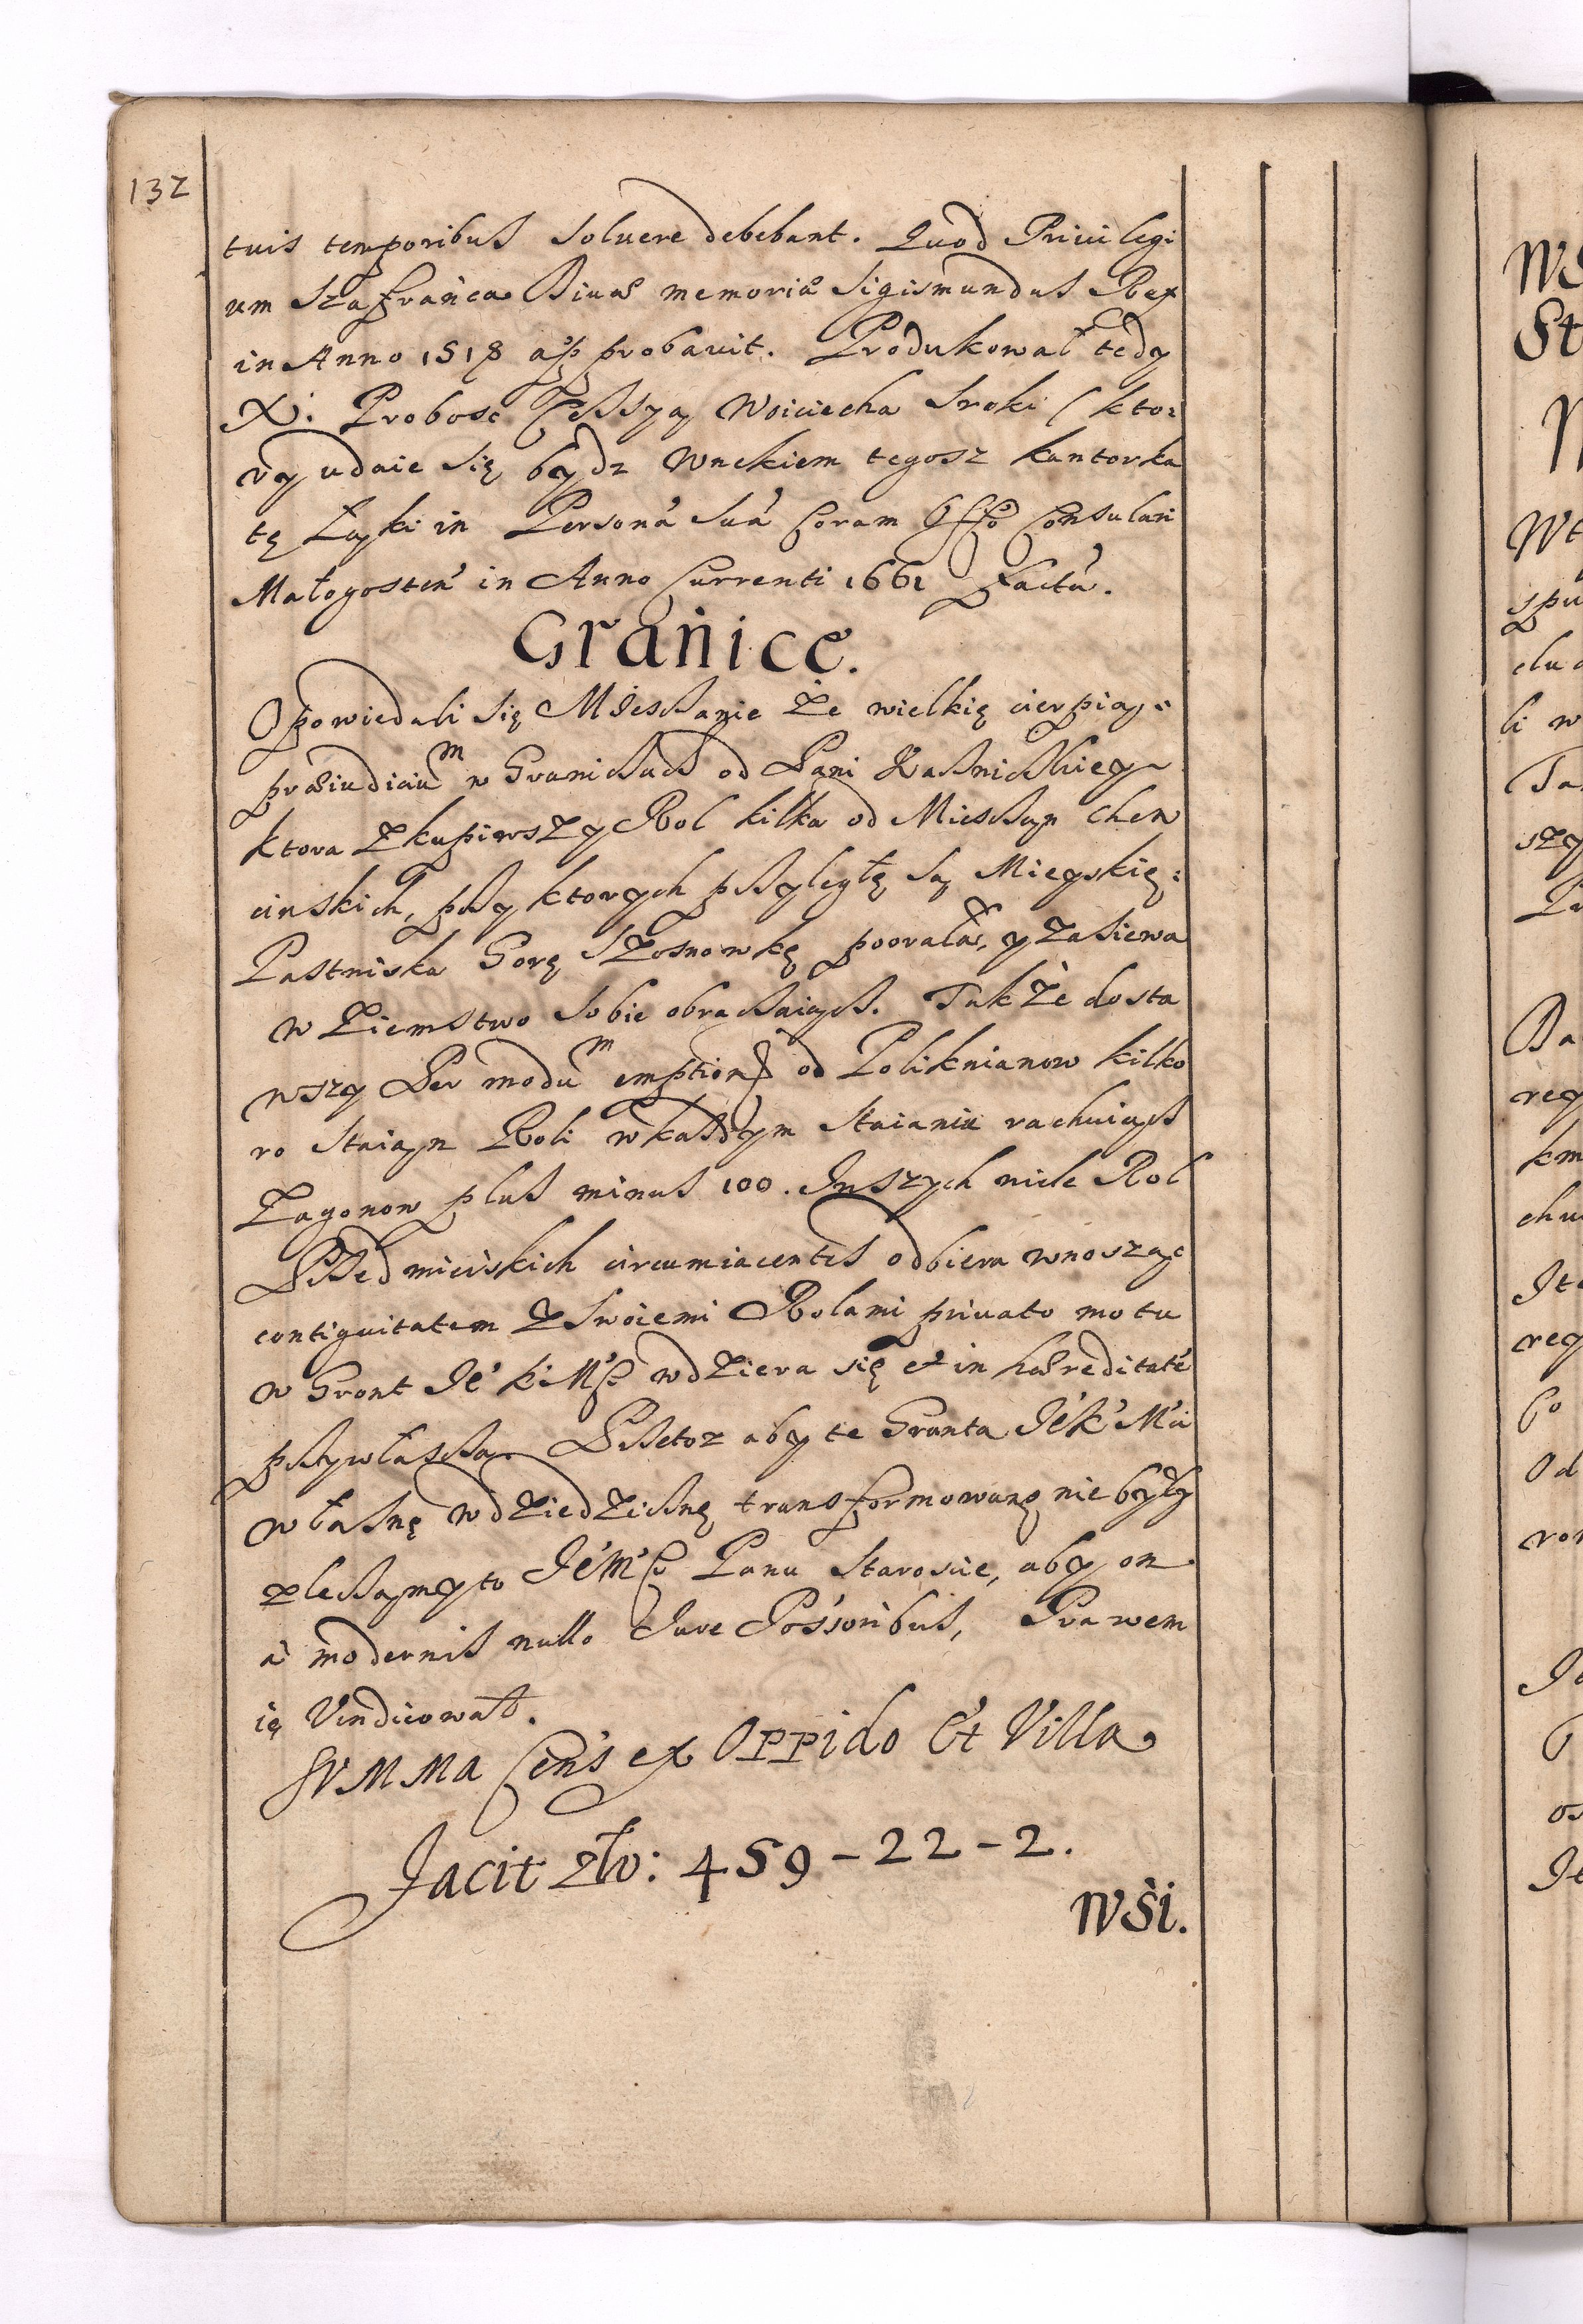 132
tuis temporibus soluere debebant. Quod Priuilegi
um Szafranca Diuae memoriae Sigismundus Rex
in Anno 1518 approbauit. Produkował tedy
X. Probosc Cessyą Woiciecha Sroki (kto:
ry udaie się bydz Wnekiem tegosz kantorka
tę Łąki in Persona sua Coram Offo Consulari
Małogosten in Anno Currenti 1661 factu.
Granice.
Opowiedali się Miesczanie Ze wielkię cierpią:
praeiudicium w Granicach od Pani
ktora Zkupiwszy Rol kilka od Miesczan Chen
cinskich, przy ktorych przyległę są Mieyskię:
Pastwiska Gorę Szosnowkę poorała, y Zasiewa
w Ziemstwo sobie obracaiąc. TakZe dosta
wszy Per modum emption od Poliknianow kilko
ro Staiąn Roli w kaZdym Staianiu rachuiąc
Zagonow plus minus 100. Inszych wiele Rol
Przedmieiskich circumiacentes odbiera wnosząc
contiguitatem Zswoiemi Rolami priuato motu
w Gront Je k: Mći wdZiera się et in haereditate
przywłascza. Przetoz aby te Grunta Je K Mći
własnę wdZiedZicznę transformowanę nie były
zlecamy to Je Mći Panu Staroscie, aby on
a modernis nullo Iure Possoribus, Prawem
ię Vindicował.
SVMMA Cens ex Oppido Et Villa
Facit zło: 459-22-2.
WSi.